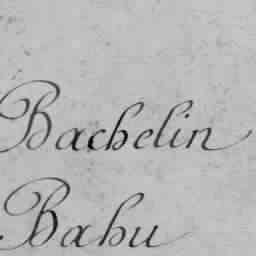 Bachelin
Bahu